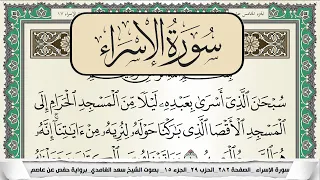 سُورَةُ الإِسْرَاء
سُبْحَٰنَ ٱلَّذِىٓ أَسْرَىٰ بِعَبْدِهِۦ لَيْلًا مِّنَ ٱلْمَسْجِدِ ٱلْحَرَامِ إِلَى
ٱلْمَسْجِدِ ٱلْأَقْصَا ٱلَّذِى بَٰرَكْنَا حَوْلَهُۥ لِنُرِيَهُۥ مِنْ ءَايَٰتِنَآ إِنَّهُۥ
سورة الإسراء _ الصفحة ٢٨٢ _ الحزب ٢٩ _ الجزء ١٥ _ بصوت الشيخ سعد الغامدي _ برواية حفص عن عاصم